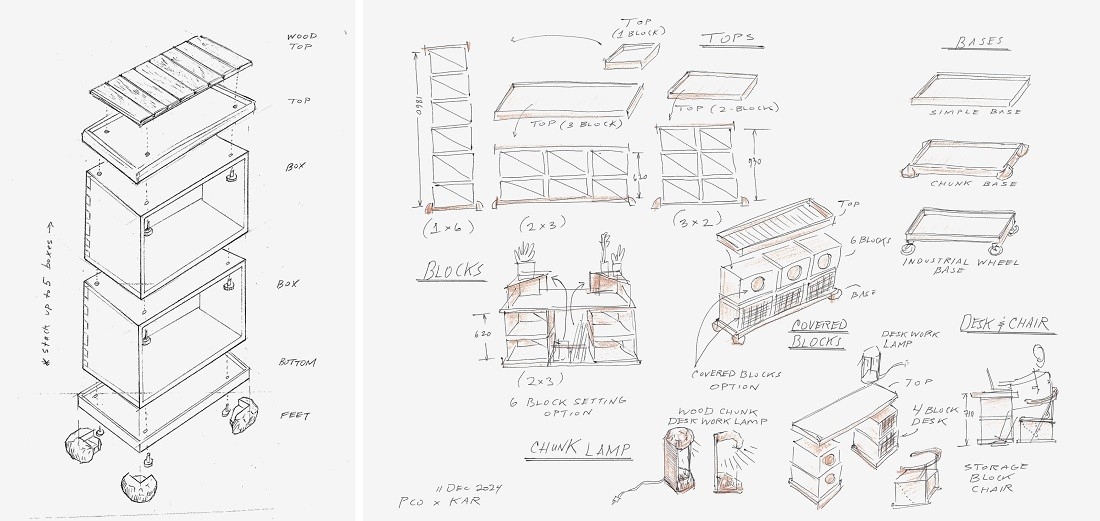 WOOD
TOP
TOP
BOX
* stack up to 5 boxes →
BOX
BOTTOM
FEET
TOP
(1 BLOCK)
TOPS
BASES
1860
TOP (3 BLOCK)
TOP (2-BLOCK)
SIMPLE BASE
620
930
CHUNK BASE
(1×6)
(2×3)
(3×2)
TOP
6 BLOCKS
INDUSTRIAL WHEEL
BASE
BLOCKS
BASE
620
COVERED
BLOCKS
DESK & CHAIR
DESK WORK
LAMP
(2×3)
COVERED BLOCKS
OPTION
TOP
6 BLOCK SETTING
OPTION
WOOD CHUNK
DESK WORK LAMP
4 BLOCK
DESK
710
CHUNK LAMP
STORAGE
BLOCK
CHAIR
11 DEC 2024
PCO × KAR